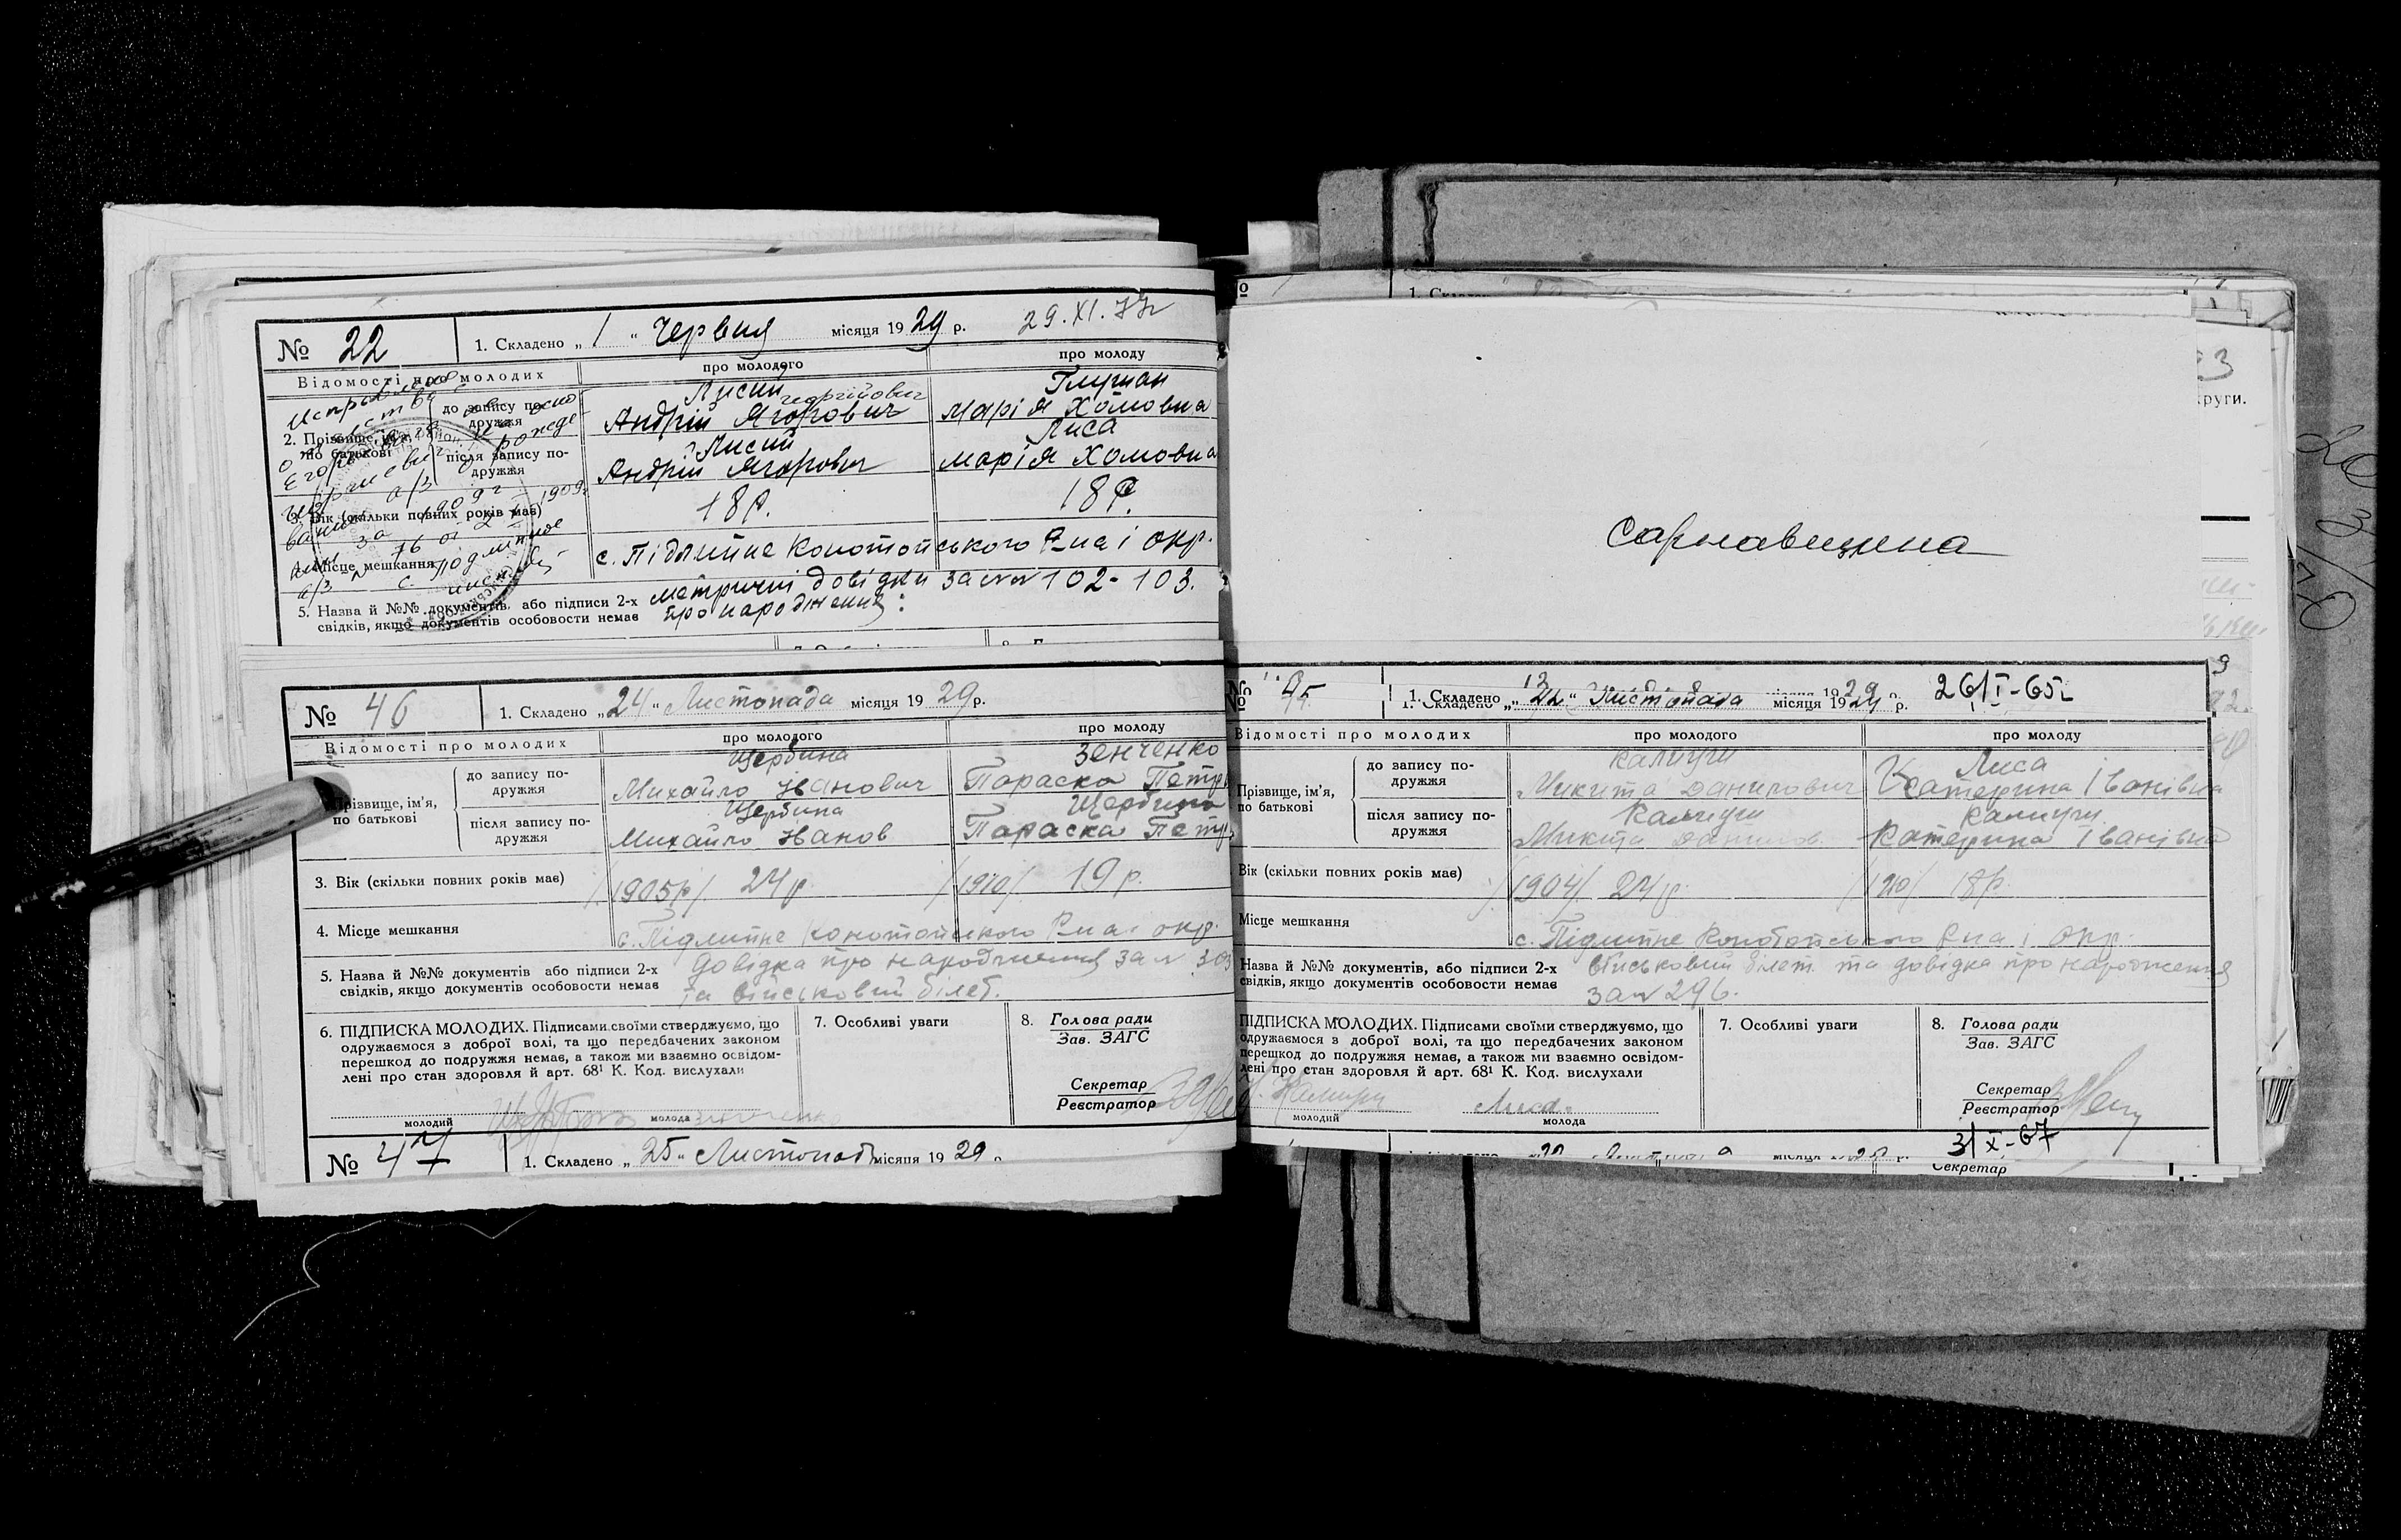 № 22
1. Складено „ 1 “ Червня місяця 1929 р. 29.XI.77г
Відомості про молодих
про молодого
про молоду
2. Прізвище, ім'я, по батькові
до запису подружжя
Лисий
Георгійович
Андрій Ягорович
Глушпан
Марія Хомовна
після запису подружжя
Лисий
Андрій Ягорович
Лиса
Марія Хомовна
3. Вік (скільки повних років має)
18 р.
18 р.
4. Місце мешкання
с. Підлипне Конотопського Р-на і окр.
5. Назва й №№ документів, або підписи 2-х
свідків, якщо документів особовости немає
метричні довідки за №№ 102-103.
про народження:
№ 46
1. Складено „ 24 “ Листопада місяця 1929 р.
Відомості про молодих
про молодого
про молоду
Прізвище, ім'я,
по батькові
до запису по-
дружжя
Щербина
Михайло Іванович
Зенченко
Параска Петр
після запису по-
дружжя
Щербина
Михайло Іванов
Щербина
Параска Петр
3. Вік (скільки повних років має)
/1905р/ 24 р
/1910/ 19 р.
4. Місце мешкання
с. Підлипне Конотопського Р-на і окр.
5. Назва й №№ документів або підписи 2-х
свідків, якщо документів особовости немає
Довідка про народження за № 303
та військовий білет.
6. ПІДПИСКА МОЛОДИХ. Підписами своїми стверджуємо, що
одружаємося з доброї волі, та що передбачених законом
перешкод до подружжя немає, а також ми взаємно освідом-
лені про стан здоровля й арт. 68¹ К. Код. вислухали
молодий
молода
7. Особливі уваги
8. Голова ради
Зав. ЗАГС
Секретар
Реєстратор
№ 47
1. Складено „ 25 “ Листопад місяця 1929
Сарнавщина
руги.
№ 45
1. Складено „ 22 “ Листопада місяця 1929 р. 26/I-65г
Відомості про молодих
про молодого
про молоду
Прізвище, ім'я,
по батькові
до запису по-
дружжя
Калиуш
Микита Данилович
Лиса
Катерина Іванівна
після запису по-
дружжя
Калиуш
Микита Данилов.
Калиуш
Катерина Іванівна
Вік (скільки повних років має)
/1904/ 24 р.
/1910/ 18 р.
Місце мешкання
с. Підлипне Конотопського Р-на і окр.
Назва й №№ документів, або підписи 2-х
свідків, якщо документів особовости немає
Військовий білет та довідка про народження
за № 296.
ПІДПИСКА МОЛОДИХ. Підписами своїми стверджуємо, що
одружаємося з доброї волі, та що передбачених законом
перешкод до подружжя немає, а також ми взаємно освідом-
лені про стан здоровля й арт. 68¹ К. Код. вислухали
молодий
Лиса
молода
7. Особливі уваги
8. Голова ради
Зав. ЗАГС
Секретар
Реєстратор
3/X-67
Секретар